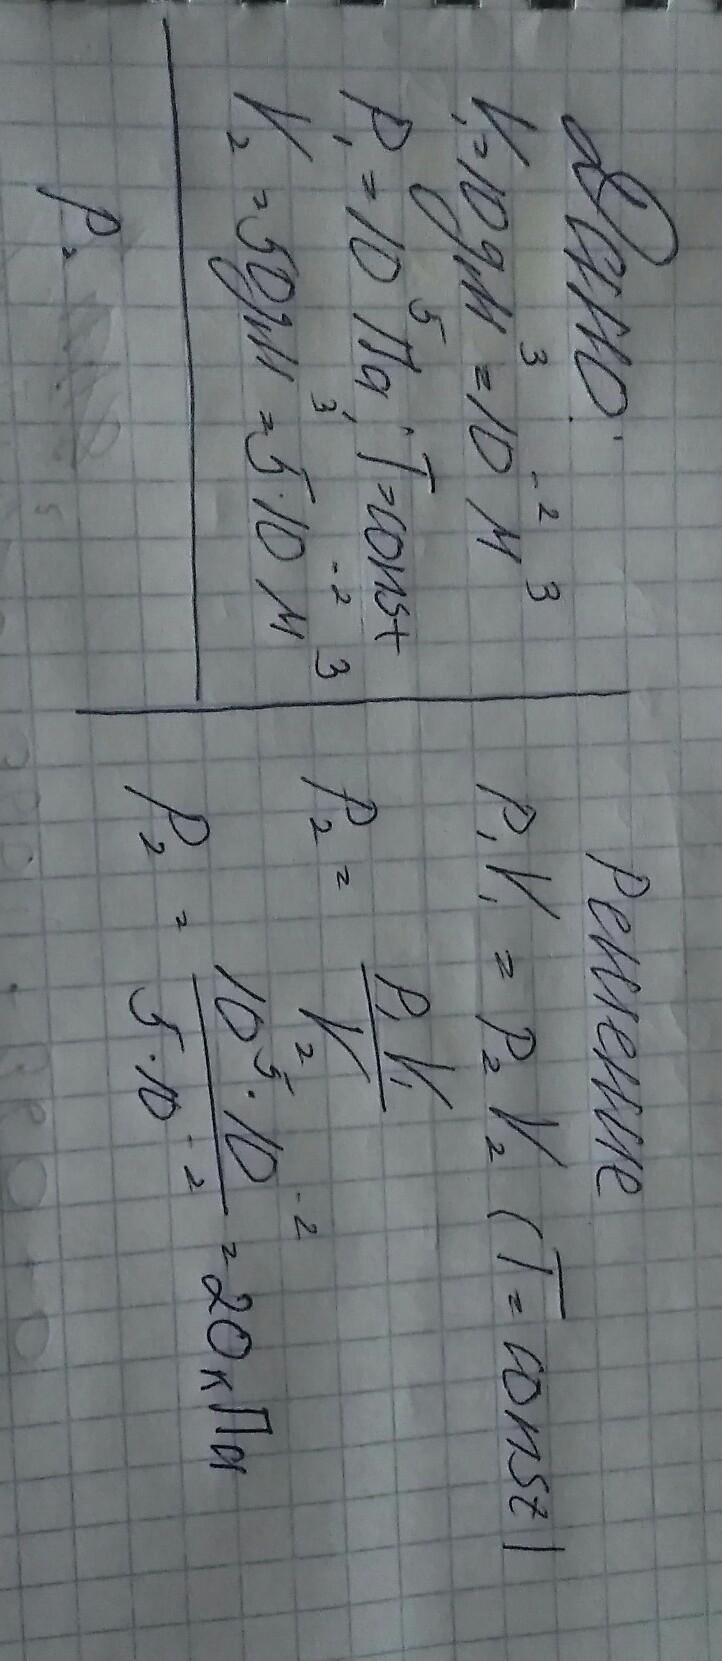 Дано:
V₁=10дм³=10⁻²м³
p₁=10⁵Па, T=const
V₂=50дм³=5·10⁻²м³
p₂
Решение
p₁V₁=p₂V₂ (T=const)
p₂=p₁V₁/V₂
p₂=10⁵·10⁻²/5·10⁻²=20кПа